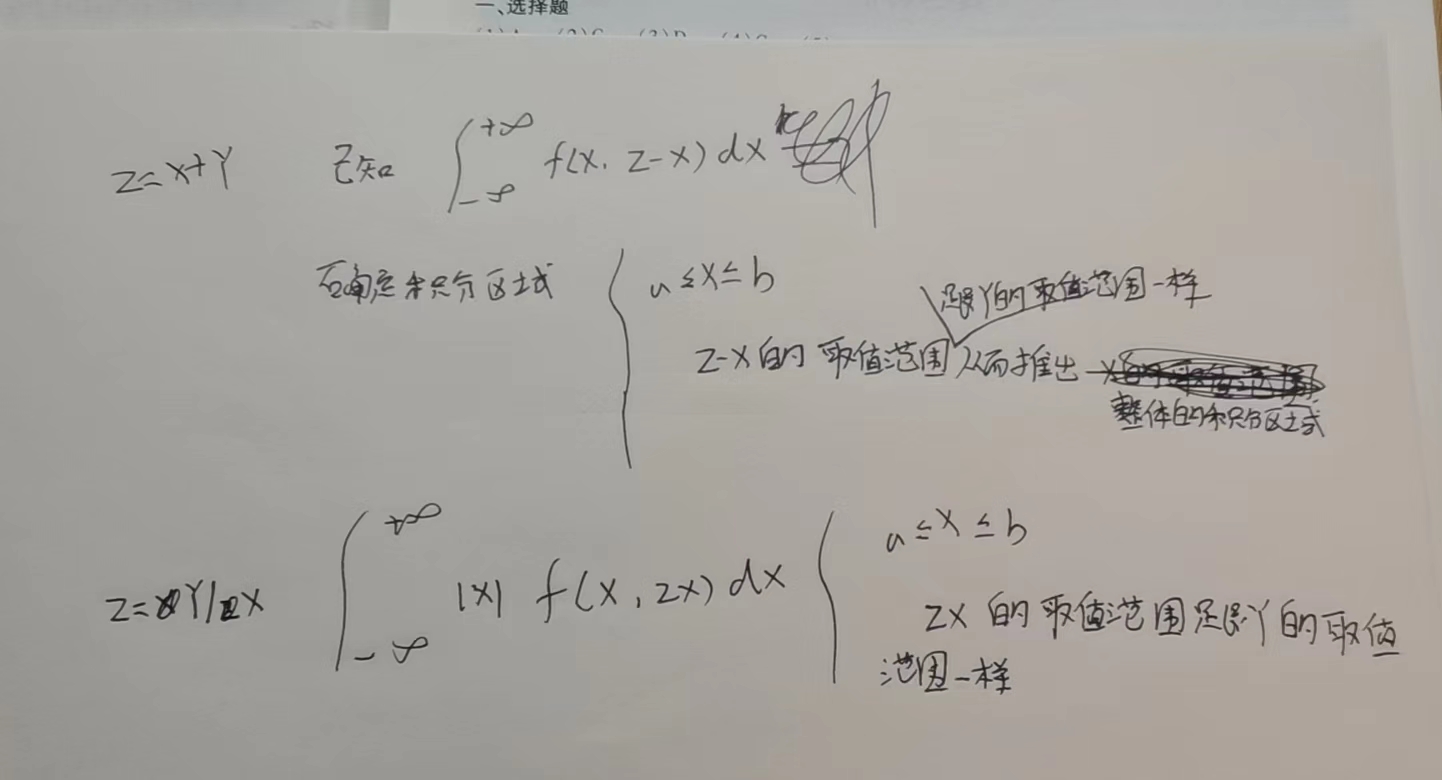 一、选择题
Z=X+Y 已知 ∫_{-∞}^{+∞} f(x, z-x) dx
确定积分区域 { a≤x≤b
是跟Y的取值范围一样
z-x的取值范围 从而推出
整体的积分区域
z=Y/X ∫_{-∞}^{+∞} |x| f(x, zx) dx { a≤x≤b
zx的取值范围是跟Y的取值
范围一样